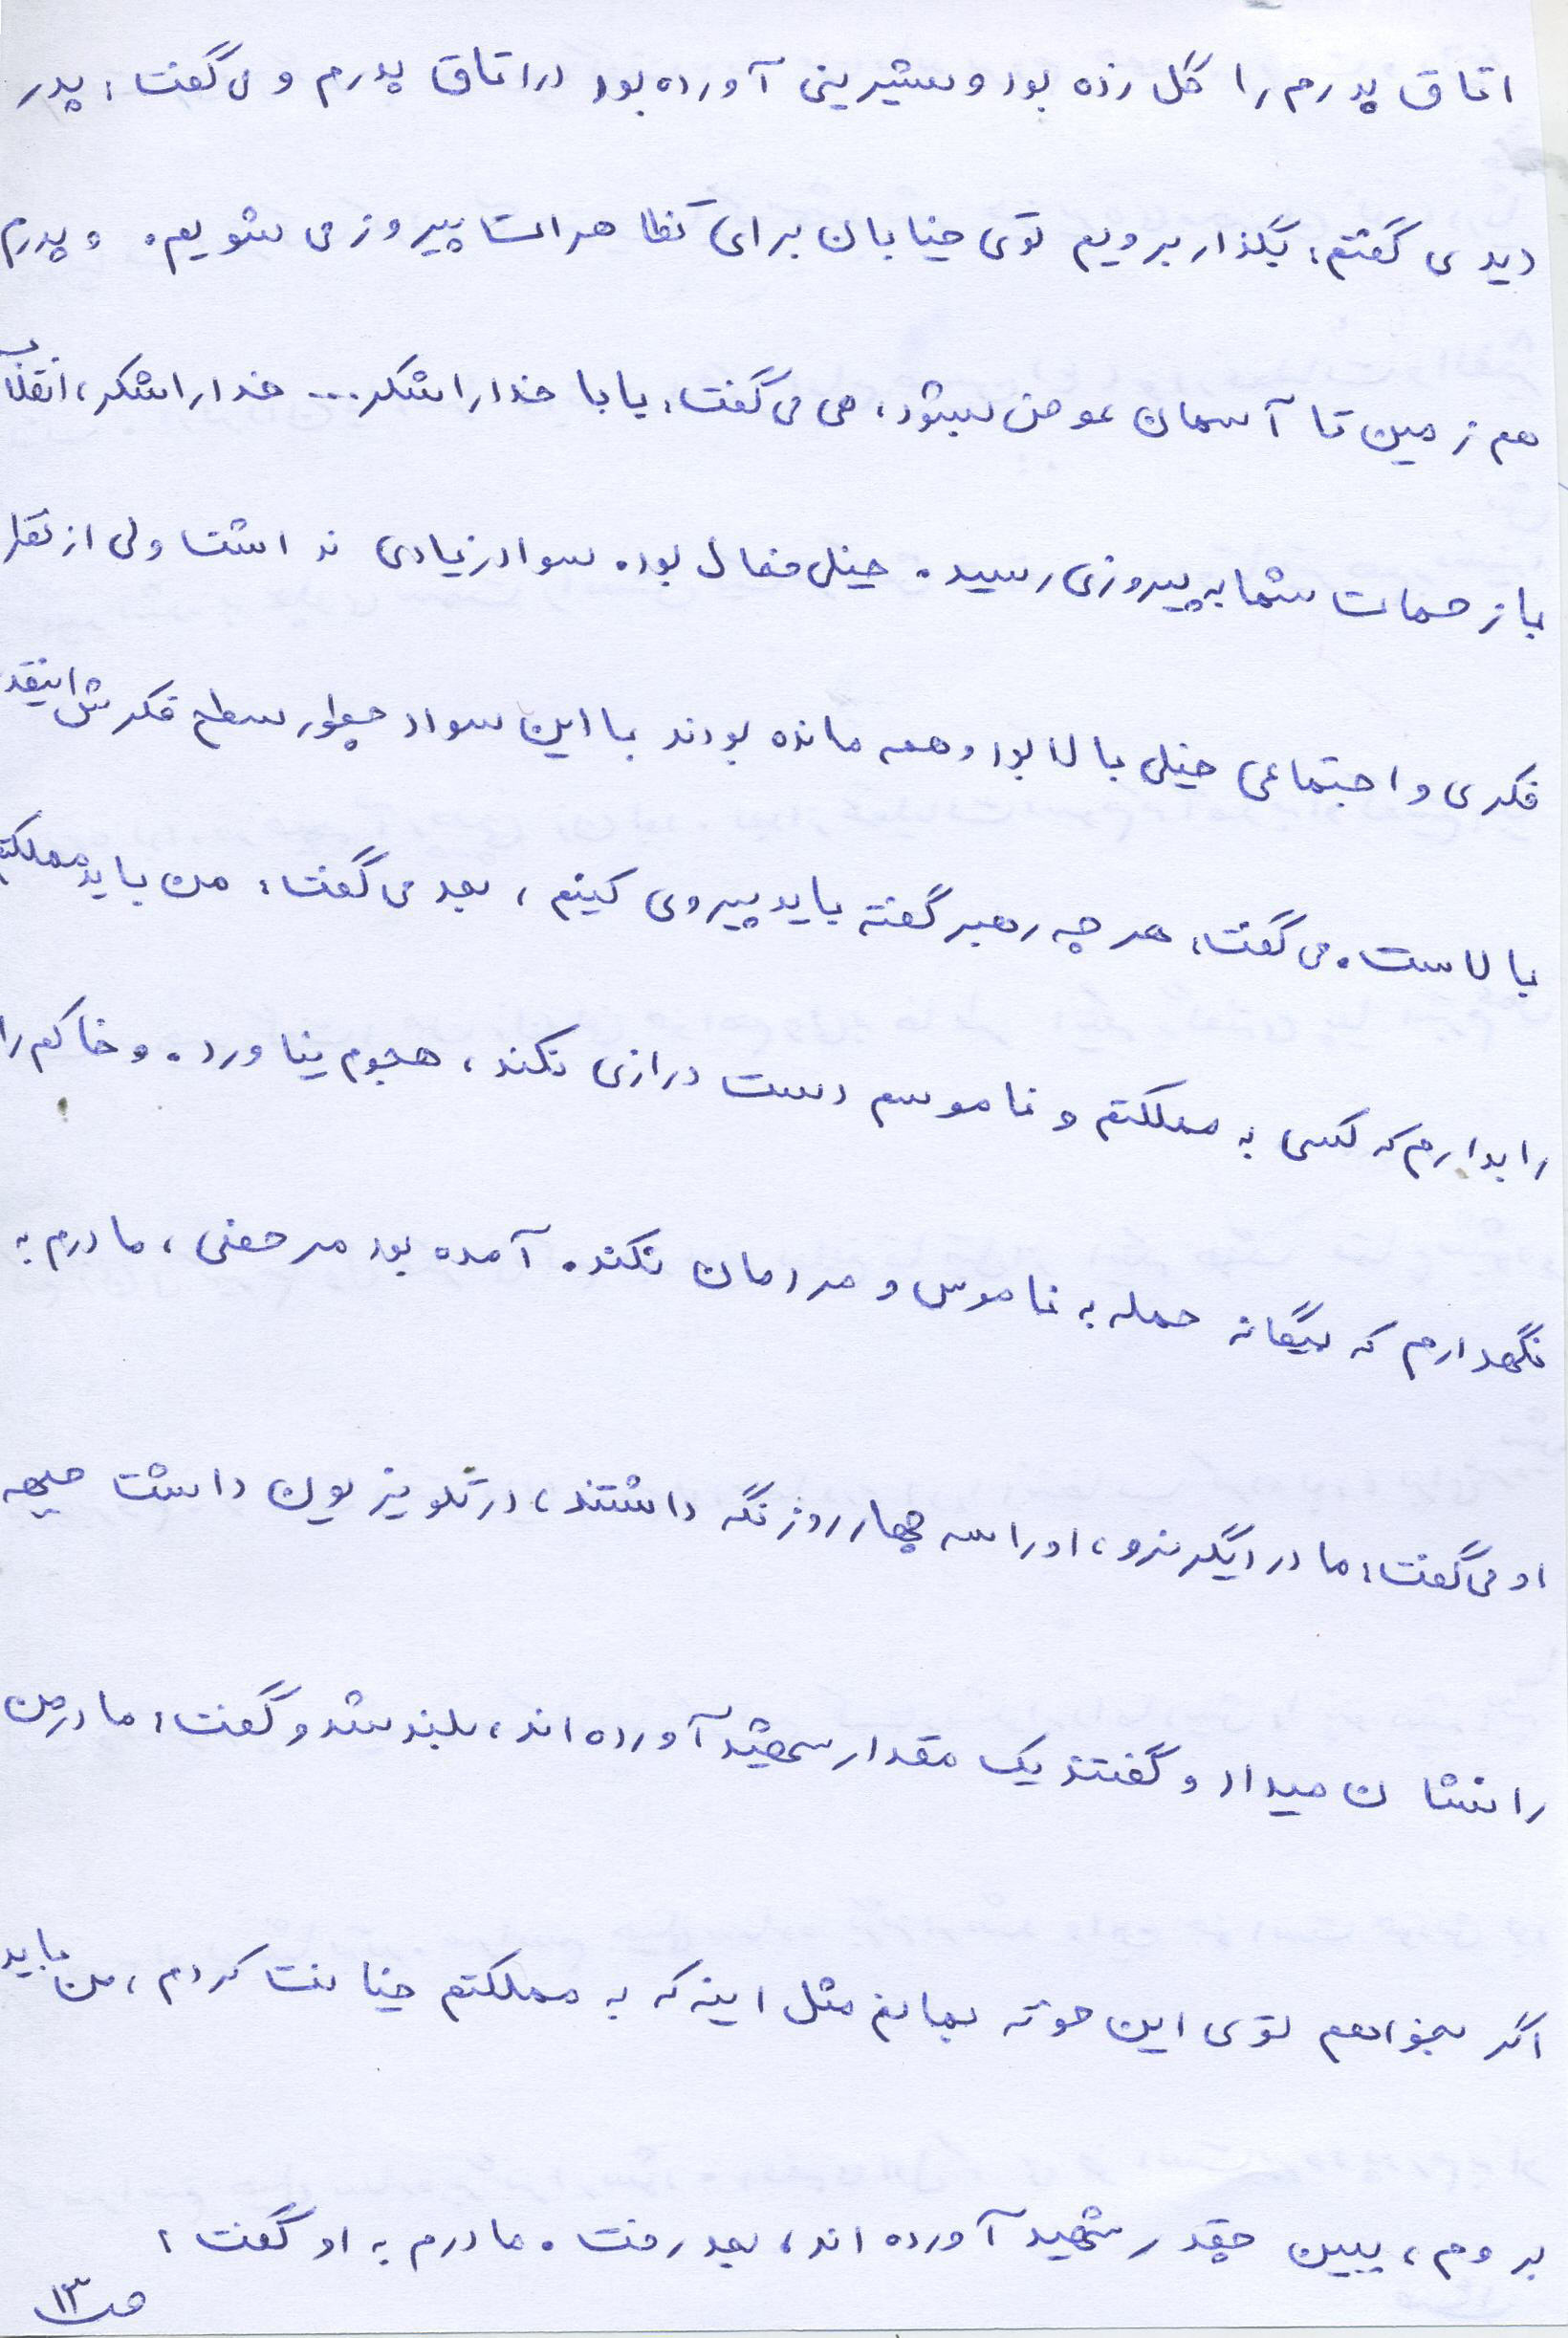 اتاق پدرم را گل زده بود و شیرینی آورده بود در اتاق پدرم و می گفت: پدر
دیدی گفتم: بگذار برویم توی خیابان برای تظاهرات پیروز می شویم. و پدرم
هم زمین تا آسمان عوض میشود، هی می گفت: بابا خدا را شکر... خدا را شکر، انقلاب
با زحمات شما به پیروزی رسید. خیلی فعال بود. سواد زیادی نداشت ولی از نظر
فکری و اجتماعی خیلی بالا بود و همه مانده بودند با این سواد چطور سطح فکرش اینقدر
بالاست. می گفت: هر چه رهبر گفته باید پیروی کنیم، بعد می گفت: من باید مملکتم
را بدارم که کسی به مملکتم و ناموسم دست درازی نکند، هجوم نیاورد. و خاکم را
نگهدارم که بیگانه حمله به ناموس و مردمان نکند. آمده بود مرخصی، مادرم به
او می گفت: مادر دیگر نرو، او را سه چهار روز نگه داشتند، در تلویزیون داشت جبهه
را نشان میداد و گفتند یک مقدار شهید آورده اند، بلند شد و گفت: مادر من
اگر بخواهم توی این خونه بمانم مثل اینه که به مملکتم خیانت کردم، من باید
بروم، ببین چقدر شهید آورده اند، بعد رفت. مادرم به او گفت:
ص ۱۳